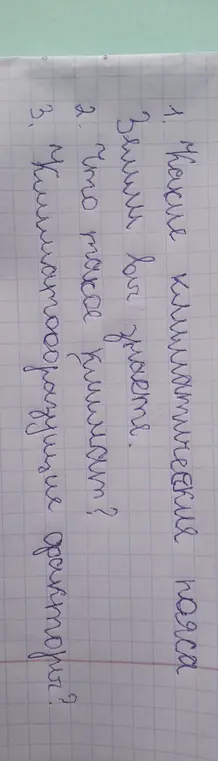 1. Какие климатические пояса
Земли вы знаете.
2. Что такое климат?
3. Климатообразующие факторы?